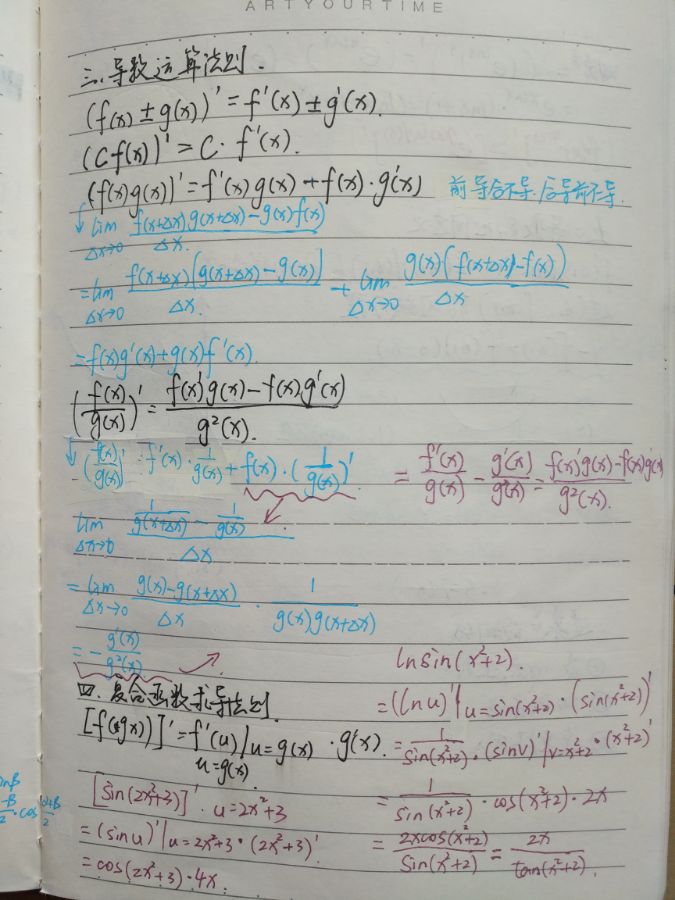 ARTYOURTIME
三.导数运算法则.
(f(x) ± g(x))' = f'(x) ± g'(x).
(Cf(x))' = C · f'(x).
(f(x)g(x))' = f'(x)g(x) + f(x)·g'(x) 前导后不导,后导前不导.
↓ lim Δx→0 f(x+Δx)g(x+Δx)-g(x)f(x) / Δx.
= lim Δx→0 f(x+Δx)[g(x+Δx)-g(x)] / Δx. + lim Δx→0 g(x)(f(x+Δx)-f(x)) / Δx
= f(x)g'(x)+g(x)f'(x).
(f(x)/g(x))' = f(x)'g(x)-f(x)g'(x) / g²(x).
↓ (f(x)/g(x))' = f'(x)·1/g(x) + f(x)·(1/g(x))' = f'(x)/g(x) - g'(x)/g²(x) = f(x)'g(x)-f(x)g'(x) / g²(x).
lim Δx→0 1/g(x+Δx) - 1/g(x) / Δx
= lim Δx→0 g(x)-g(x+Δx) / Δx · 1 / g(x)g(x+Δx)
= - g'(x) / g²(x)
四.复合函数求导法则.
[f(g(x))]' = f'(u)|u=g(x) · g'(x).
u=g(x)
[sin(2x²+3)]'. u=2x²+3
= (sinu)'|u=2x²+3 · (2x²+3)'
= cos(2x²+3)·4x.
lnsin(x²+2).
= (lnu)'|u=sin(x²+2) · (sin(x²+2))'
= 1/sin(x²+2) · (sinv)'|v=x²+2 · (x²+2)'
= 1/sin(x²+2) · cos(x²+2)·2x
= 2xcos(x²+2)/sin(x²+2) = 2x/tan(x²+2).